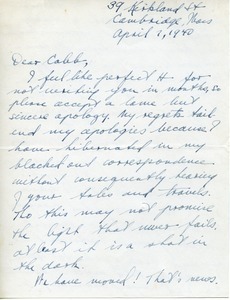 39 Kirkland St
Cambridge, Mass
April 2, 1940
Dear Cobb,
I feel like perfect for
not writing you in months, so
please accept a lame but
sincere apology. My regrets tail
end my apologies because I
have hibernated in my
blacked out correspondence
without consequently hearing
of your tales and travels.
Tho this may not promise
the light that never fails,
at last it is a shot in
the dark.
We have moved! That's news.